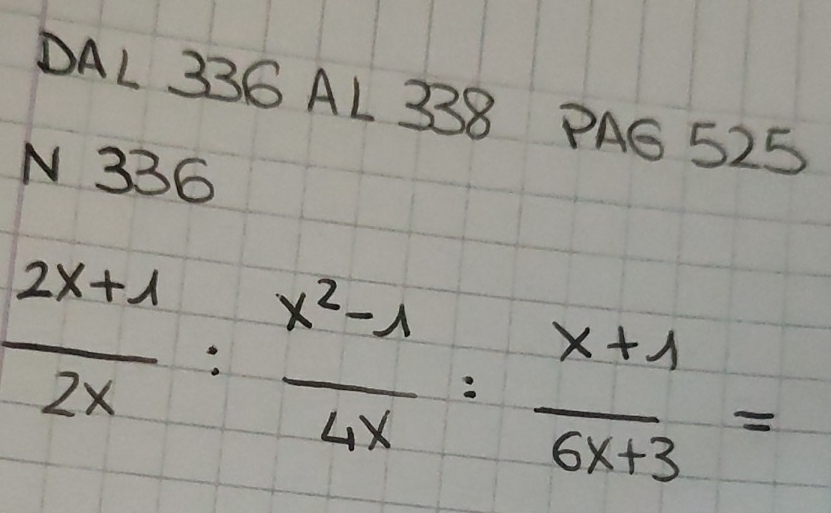 DAL 336 AL 338 PAG 525
N 336
(2x+1)/(2x) : (x²-1)/(4x) : (x+1)/(6x+3) =